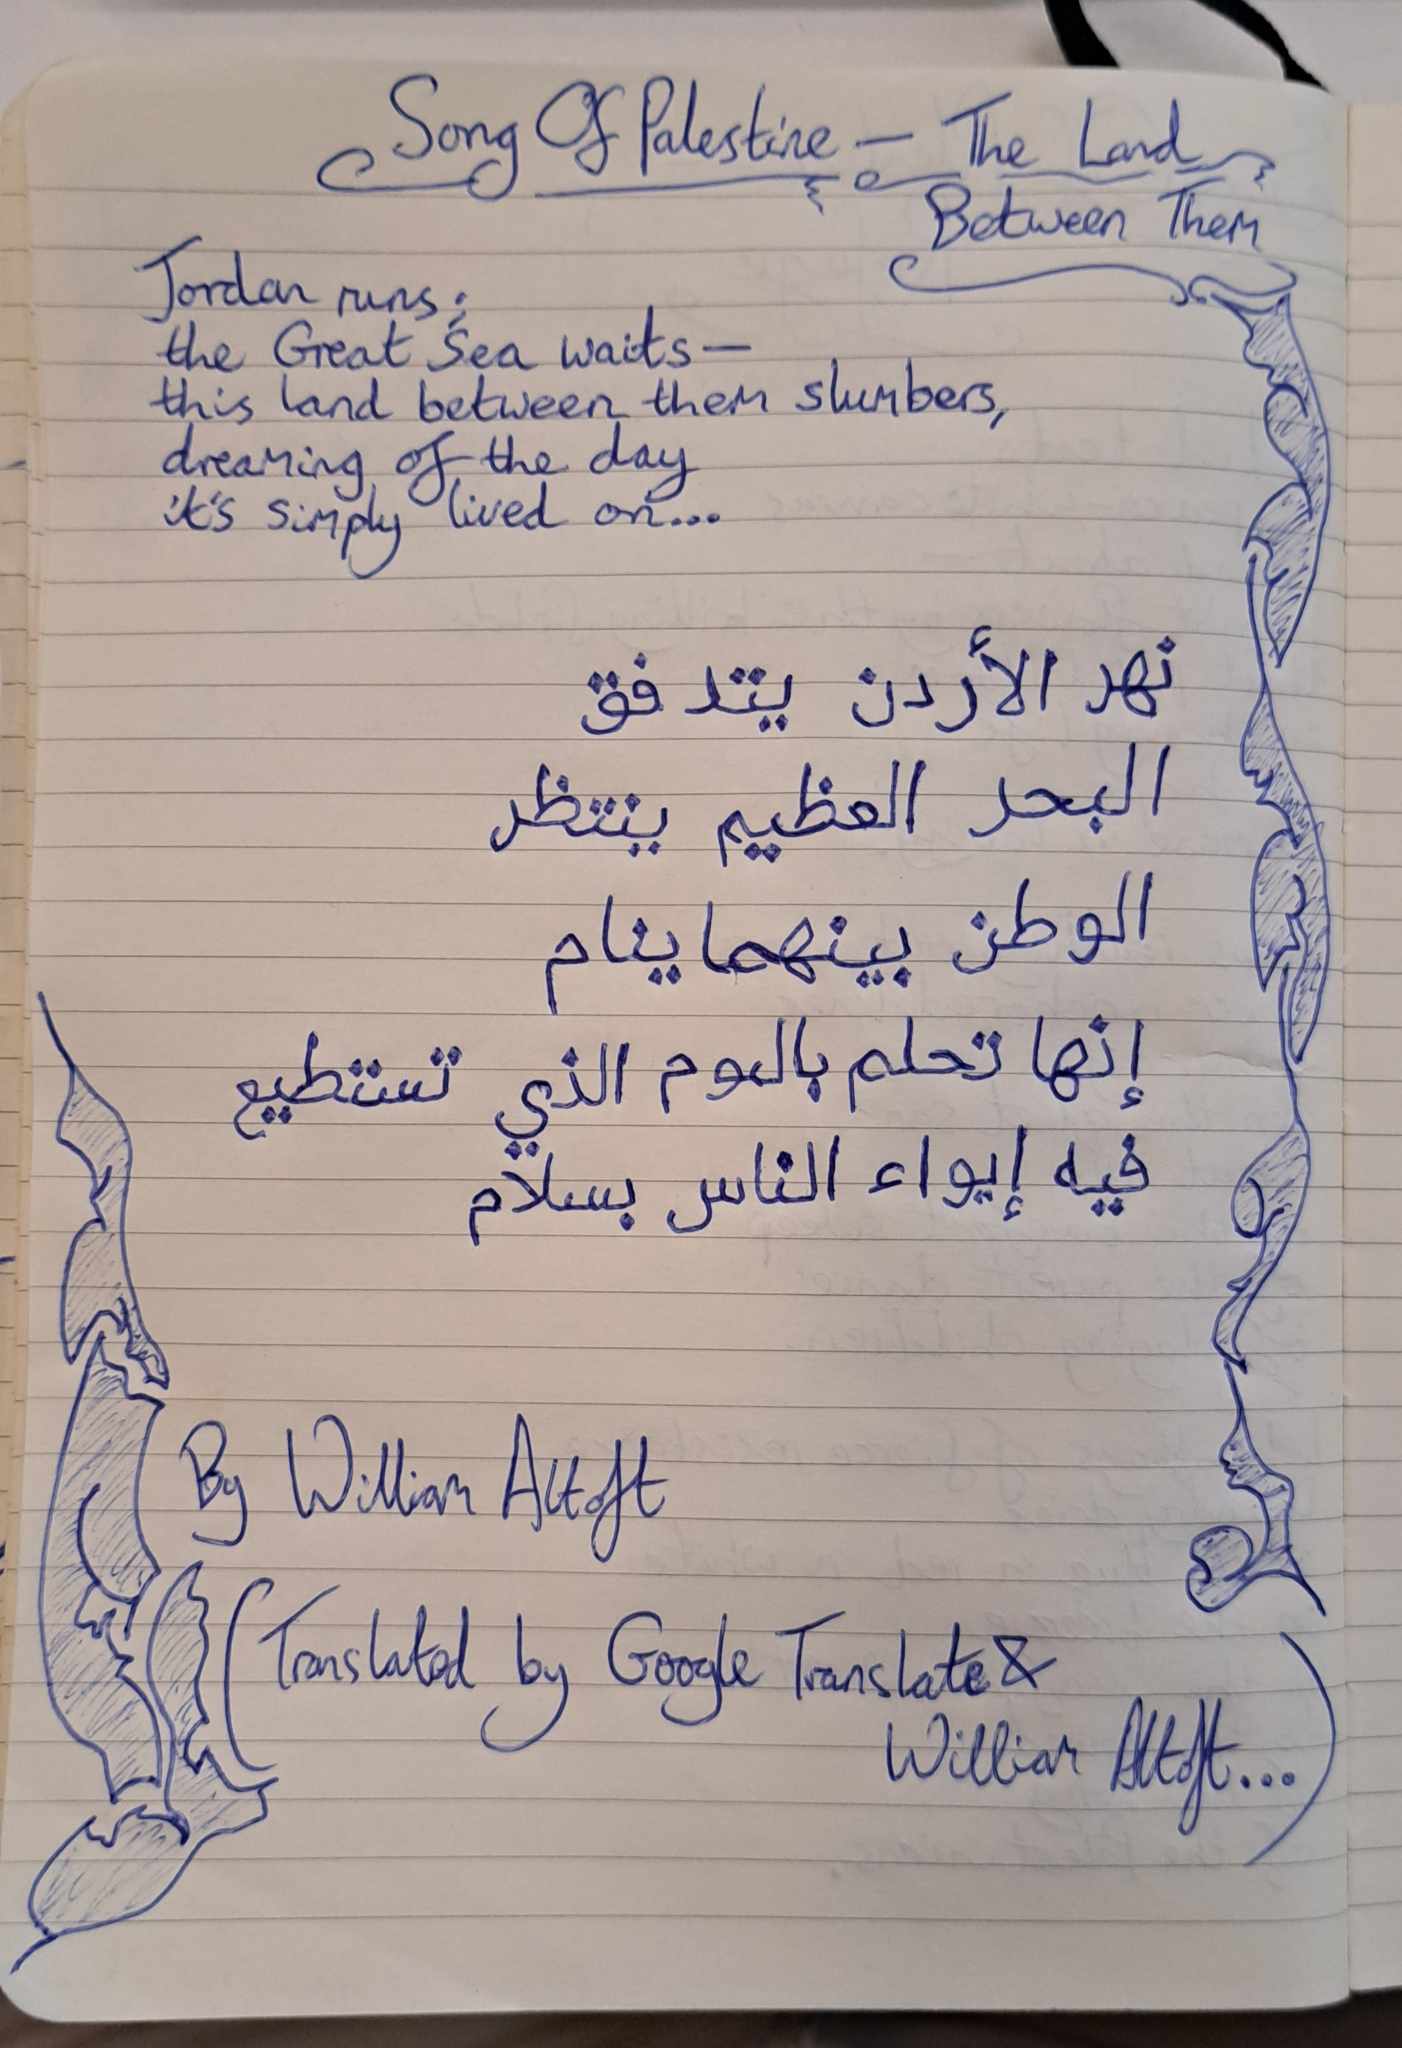 Song Of Palestine — The Land
Between Them
Jordan runs;
the Great Sea waits—
this land between them slumbers,
dreaming of the day
it's simply lived on...
نهر الأردن يتدفق
البحر العظيم ينتظر
الوطن بينهما ينام
إنها تحلم باليوم الذي تستطيع
فيه إيواء الناس بسلام
By William Altoft
(Translated by Google Translate &
William Altoft...)